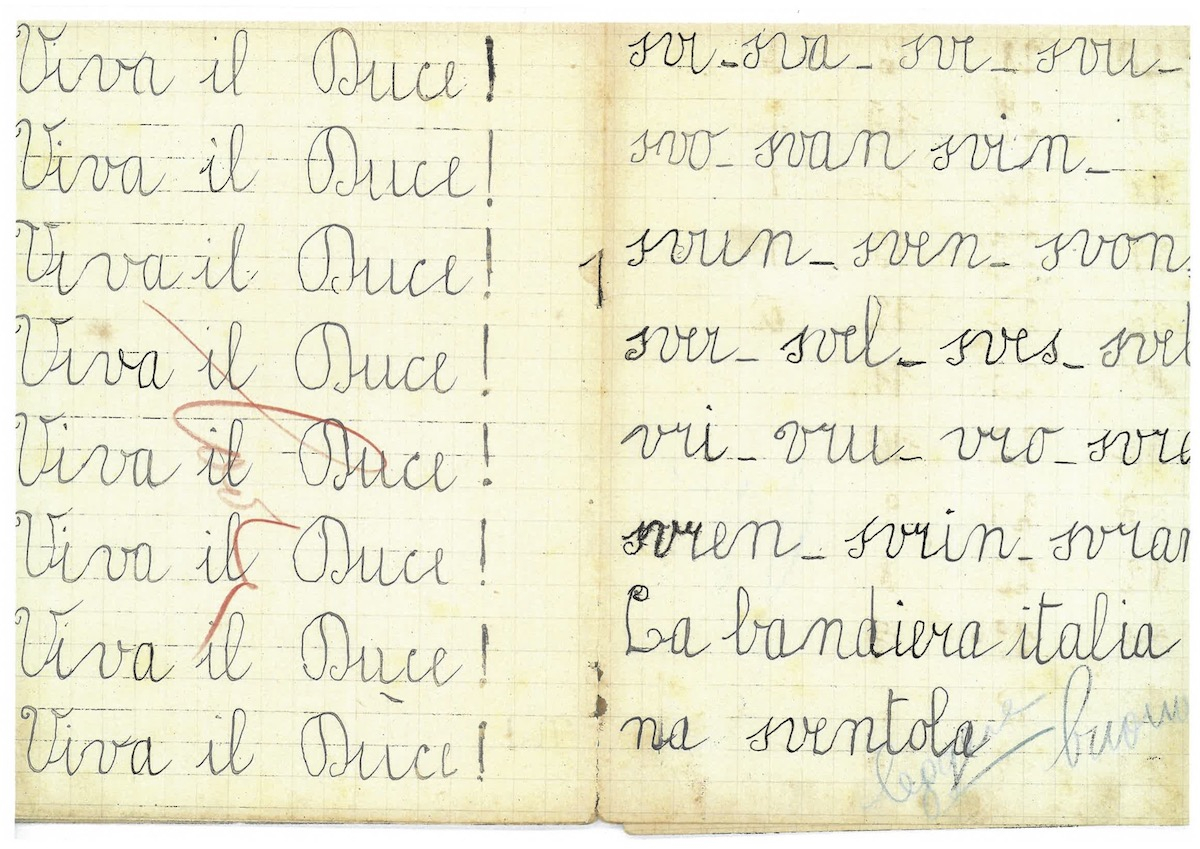 Viva il Duce!
Viva il Duce!
Viva il Duce!
Viva il Duce!
Viva il Duce!
Viva il Duce!
Viva il Duce!
Viva il Duce!
1
svi - sva - sve - svu -
svo - svan svin -
svun - sven - svon
sver - svel - sves - svel
vri - vru - vro - svre
svren - svrin - svran
La bandiera italia
na sventola